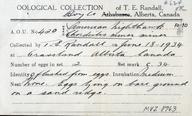 OOLOGICAL COLLECTION of T. E. Randall,
Boyle Athabasca, Alberta, Canada
A.O.U. No. 420 American Nighthawk
Chordeiles minor minor
Collected by T. E. Randall on June 13. 1934
at Grassland Alberta Canada
Number of eggs in set 2 Set No. 34
Identity flushed from eggs Incubation medium
Nest none. Eggs lying on bare ground
on a sand ridge.
MVZ 7763